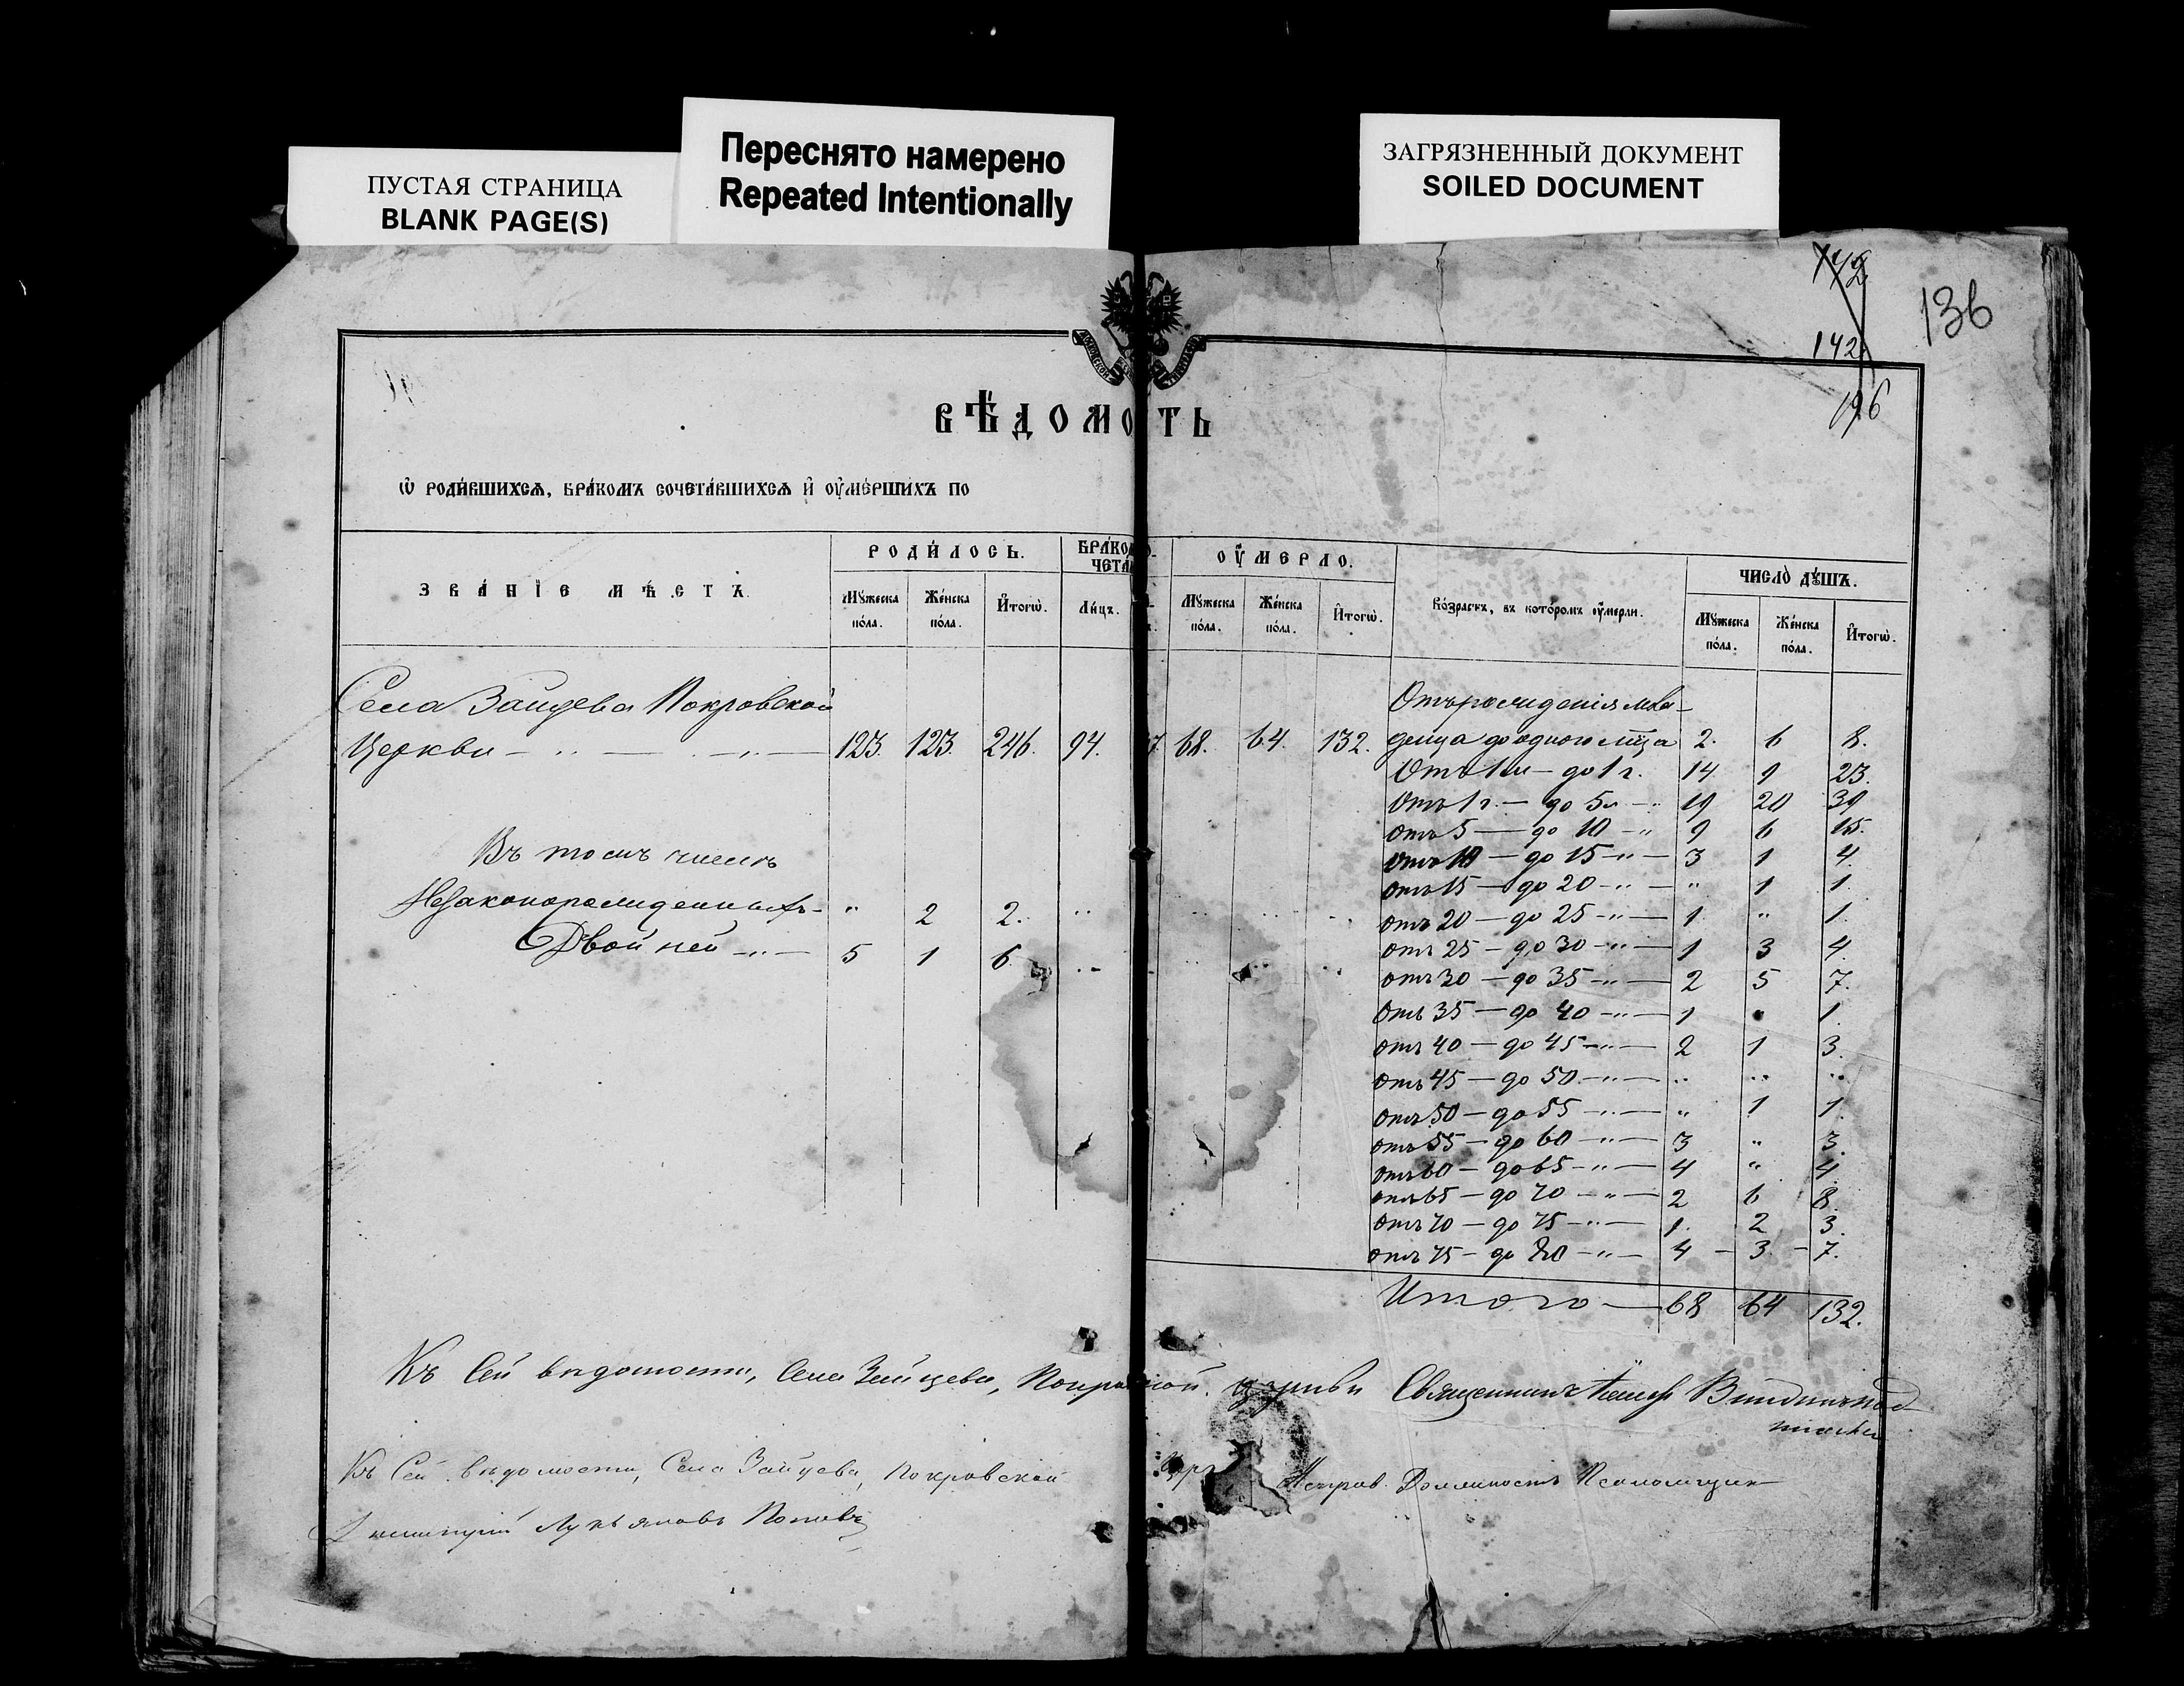 ПУСТАЯ СТРАНИЦА
BLANK PAGE(S)
Переснято намерено
Repeated Intentionally
ЗАГРЯЗНЕННЫЙ ДОКУМЕНТ
SOILED DOCUMENT
136
142
196
ВѢДОМО ТЬ
Ѡ РОДИ́ВШИХСѦ, БРА́КОМЪ СОЧЕТА́ВШИХСѦ И҆ ОУ҆МЕ́РШИХЪ ПО
ЗВА́НІЕ МѢ́СТЪ.
РОДИ́ЛОСЬ.
Мꙋ́жеска по́ла.
Же́нска по́ла.
И҆тогѡ̀.
БРА́КО
ЧЕТА
Ли́цъ.
ОУ҆́МЕРЛО.
Мꙋ́жеска по́ла.
Же́нска по́ла.
И҆тогѡ̀.
Во́зрастъ, въ кото́ромъ оу҆́мерли.
ЧИСЛО̀ ДꙊ́ШЪ.
Мꙋ́жеска по́ла.
Же́нска по́ла.
И҆тогѡ̀.
Села Зайцева Покровской
Церкви — „ — „ — 123. 123. 246. 94. 7. 68. 64. 132.
Въ томъ числѣ
Незаконорожденныхъ — „ 2 2. „
Двойней — „ — 5 1 6. „
Отъ рожденія мла-
денца до одного мѣца 2. 6 8.
Отъ 1 м — до 1 г. 14. 9 23.
Отъ 1 г. — до 5 л — „ 19 20 39
отъ 5 — до 10 — „ 9 6 15.
отъ 10 — до 15 — „ — 3 1 4.
отъ 15 — до 20 — „ — „ 1 1.
отъ 20 — до 25 — „ — 1 „ 1.
отъ 25 — до 30 — „ — 1 3 4.
отъ 30 — до 35 — „ — 2 5 7.
отъ 35 — до 40 — „ — 1 „ 1.
отъ 40 — до 45 — „ — 2 1 3.
отъ 45 — до 50 — „ — „ „ „
отъ 50 — до 55 — „ — „ 1 1.
отъ 55 — до 60 — „ — 3 „ 3.
отъ 60 — до 65 — „ — 4 „ 4.
отъ 65 — до 70 — „ — 2 6 8.
отъ 70 — до 75 — „ — 1. 2 3.
отъ 75 — до 80 — „ — 4 — 3 — 7.
Итого — 68 64 132.
Къ сей вѣдомости, Села Зайцева, Покровской церкви Священникъ
Къ сей вѣдомости, Села Зайцева, Покровской Исправ. Должность Псаломщик
Лукьяновъ Поповъ